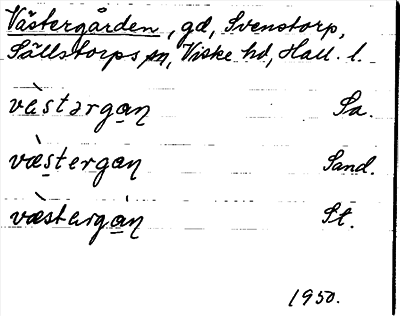 Västergården, gd, Svenstorp,
Sällstorps sn, Viske hd, Hall. l.
vàstərgan̥ Sa.
væ̀stergan̥ Sand.
væ̀stərgán̥ St.
1950.